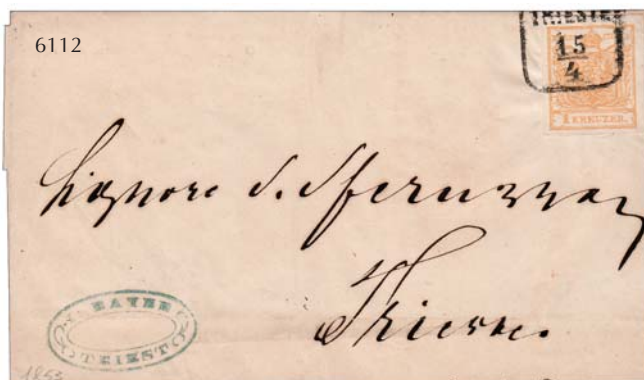 6112
TRIESTE
15
4
1 KREUZER.
Signore
Trieste
BAYER
TRIEST
1853